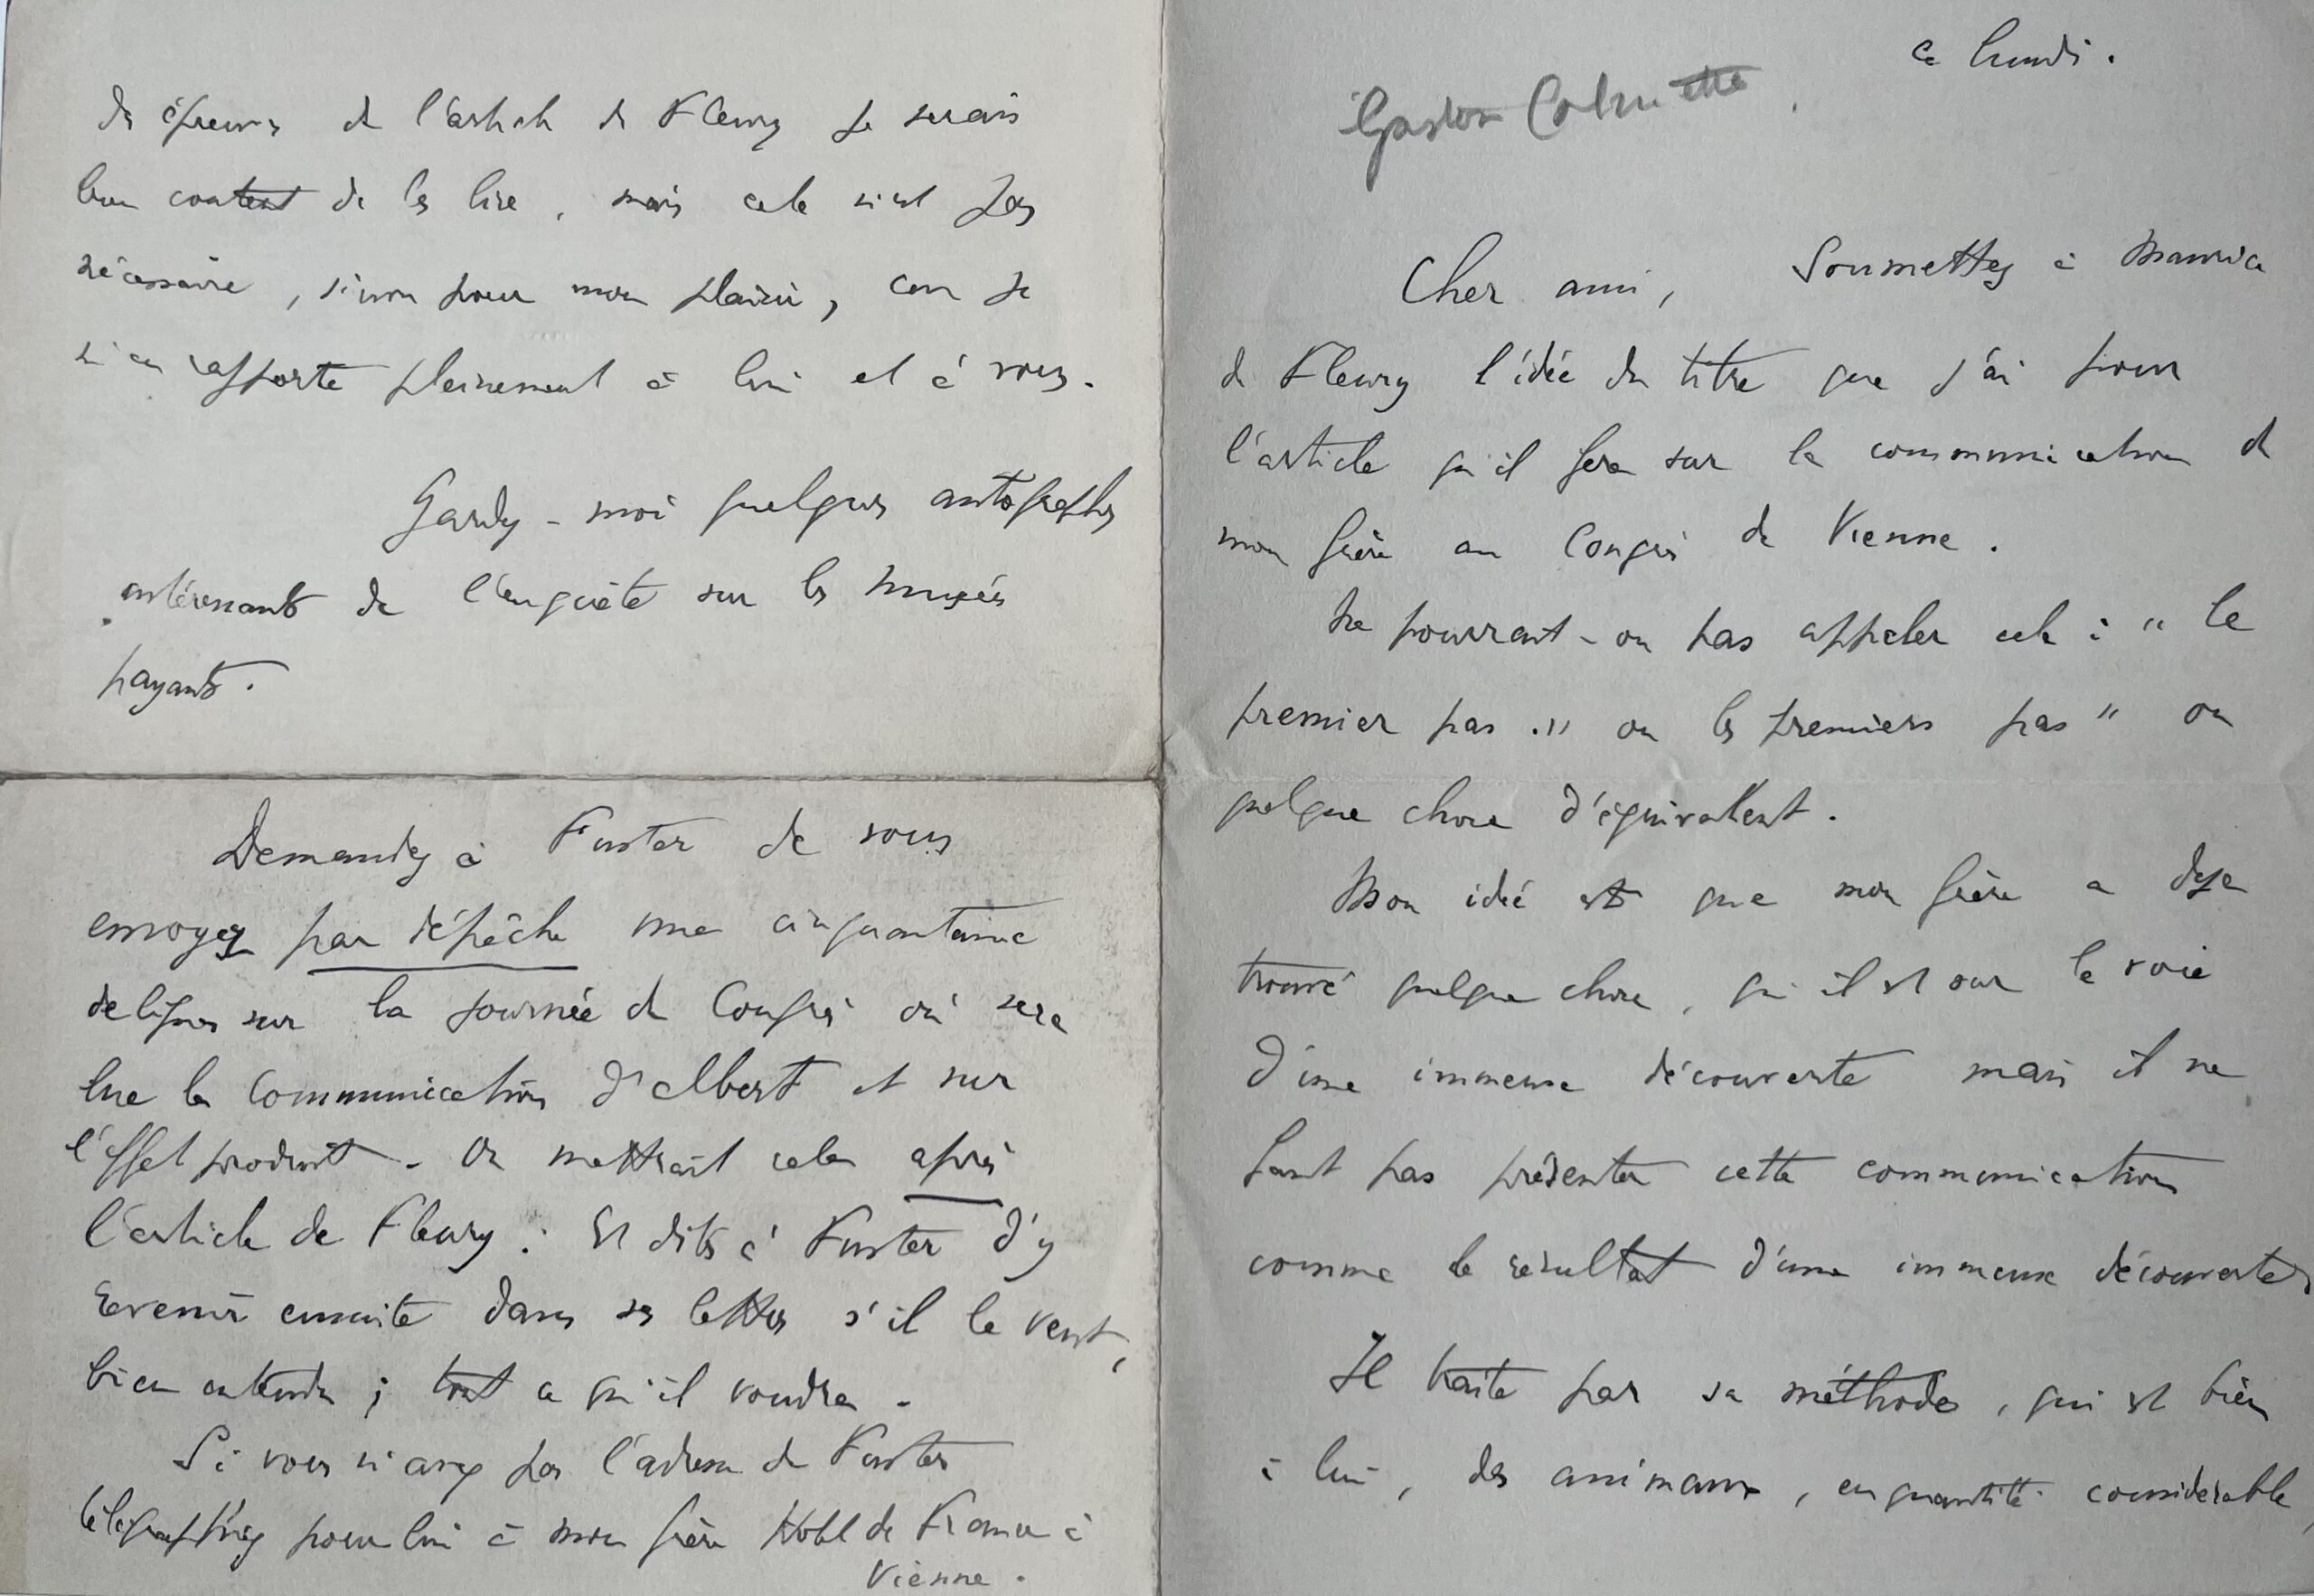 Ce lundi.
Gaston Calmette.
Cher ami, Soumettez à Maurice
de Fleury l'idée du titre que j'ai pour
l'article qu'il fera sur la communication de
mon frère au Congrès de Vienne.
Ne pourrait-on pas appeler cela : " Le
premier pas." ou les premiers pas" ou
quelque chose d'équivalent.
Mon idée est que mon frère a déjà
trouvé quelque chose, qu'il est sur la voie
d'une immense découverte mais il ne
faut pas présenter cette communication
comme le résultat d'une immense découverte
Il traite par sa méthode, qui est bien
à lui, des animaux, en quantité considérable,
des épreuves de l'article de Fleury je serais
bien content de les lire, mais cela n'est pas
nécessaire, sinon pour mon plaisir, car je
m'en rapporte pleinement à lui et à vous.
Gardez-moi quelques autographes
intéressants de l'enquête sur les musées
payants.
Demandez à Fuster de vous
envoyez par dépêche une cinquantaine
de lignes sur la journée du Congrès où sera
lue la Communication d'Albert et sur
l'effet produit. On mettrait cela après
l'article de Fleury. Et dites à Fuster d'y
revenir ensuite dans ses lettres s'il le veut,
bien entendu ; tout ce qu'il voudra.
Si vous n'avez pas l'adresse de Fuster
télégraphiez pour lui à mon frère Hôtel de France à
Vienne.